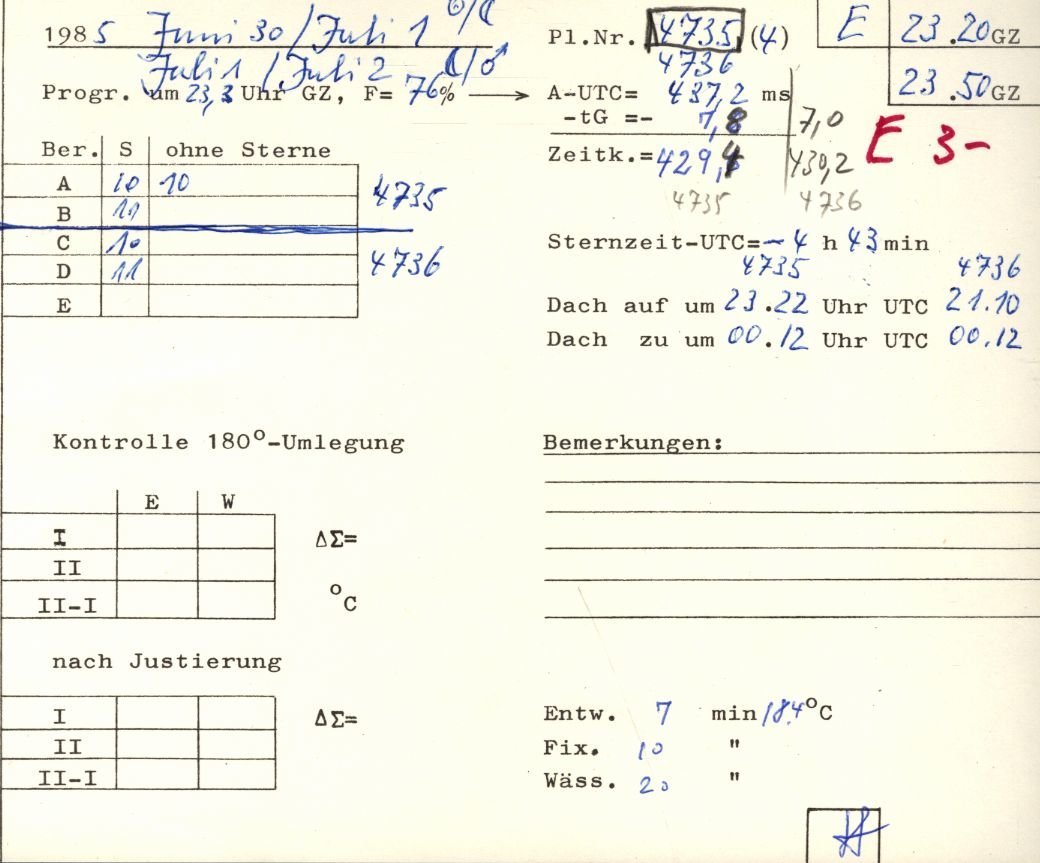 1985 Juni 30/Juli 1 ☉/☾
Juli 1 / Juli 2 ☾/♂
Progr. um 23,3 Uhr GZ, F= 76% →
Pl.Nr. 4735 (4)
4736
E 23.20 GZ
23.50 GZ
A-UTC= 437,2 ms
-tG =- 7,8 7,0
Zeitk.= 429,4 430,2
4735 4736
E 3-
Ber. S ohne Sterne
A 10 10
B 11
4735
C 10
D 11
4736
E
Sternzeit-UTC=-4 h 43 min
4735 4736
Dach auf um 23.22 Uhr UTC 21.10
Dach zu um 00.12 Uhr UTC 00.12
Kontrolle 180°-Umlegung
E W
I ΔΣ=
II
II-I °C
Bemerkungen:
nach Justierung
I ΔΣ=
II
II-I
Entw. 7 min 18,4°C
Fix. 10 "
Wäss. 20 "